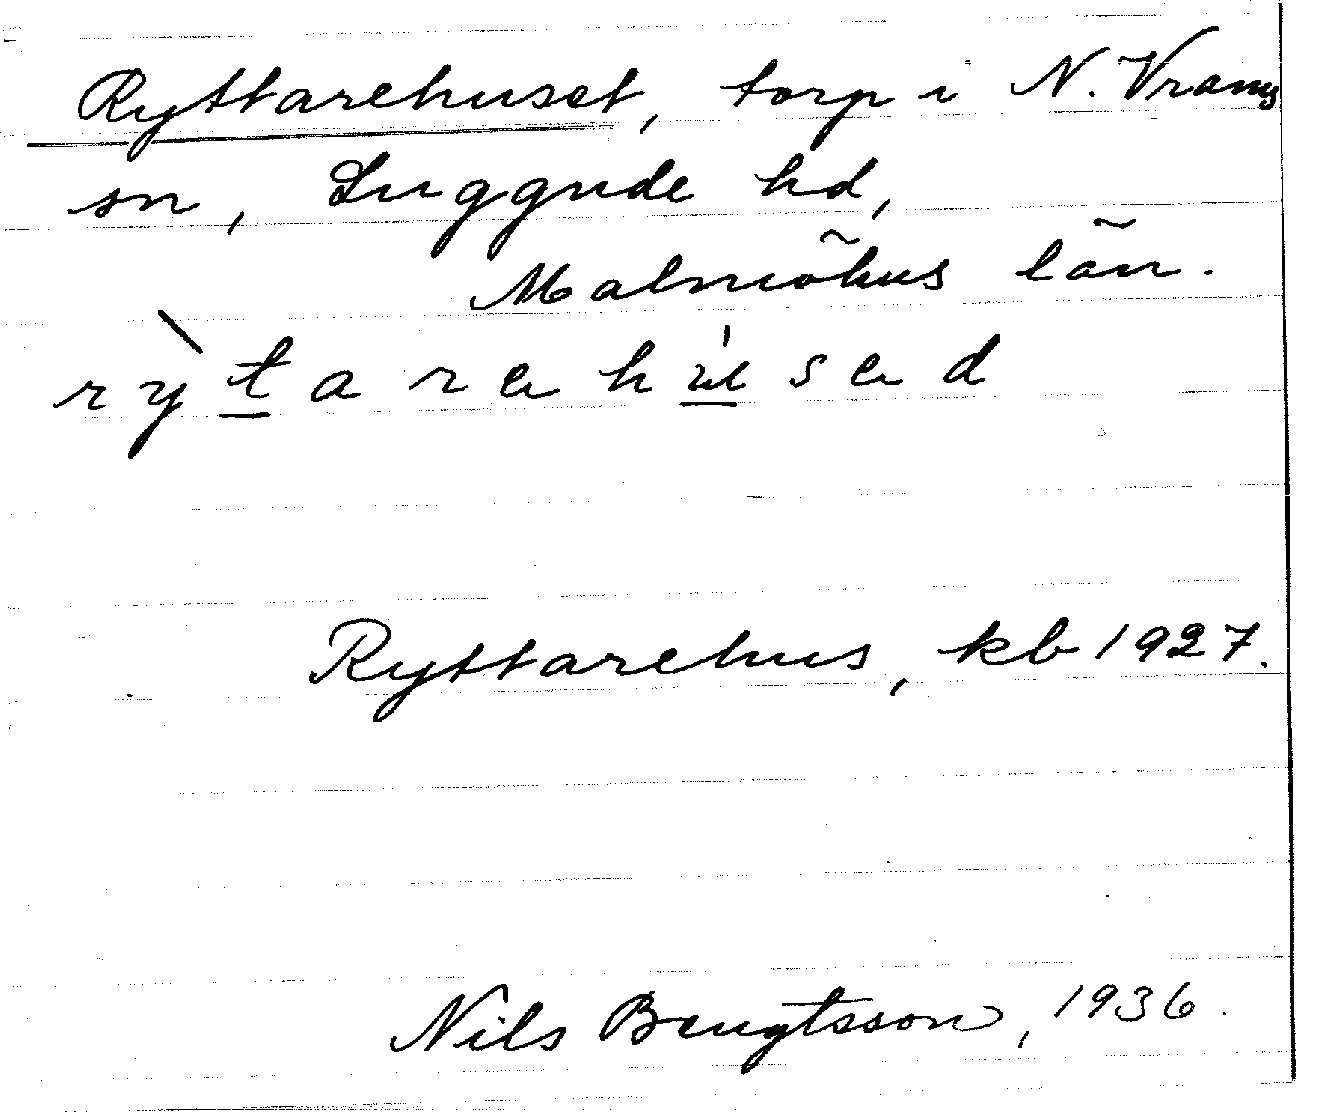 Ryttarehuset, torp i N. Vrams
sn, Luggude hd,
Malmöhus län.
rỳtarehúsed
Ryttarehus, kb 1927.
Nils Bengtsson, 1936.